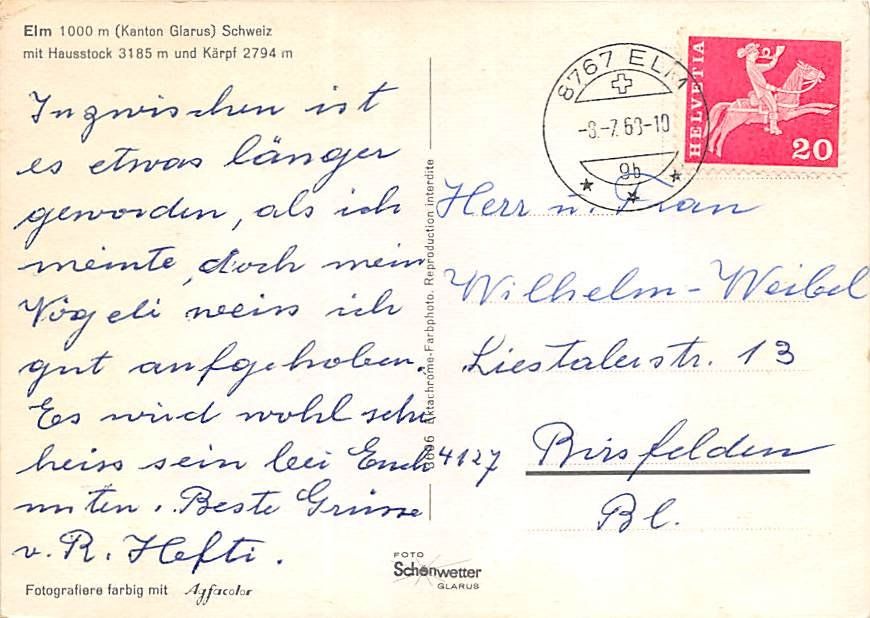 Elm 1000 m (Kanton Glarus) Schweiz
mit Hausstock 3185 m und Kärpf 2794 m
Inzwischen ist
es etwas länger
geworden, als ich
meinte, doch mein
Vögeli weiss ich
gut aufgehoben.
Es wird wohl sehr
heiss sein bei Euch
unten. Beste Grüsse
v. R. Hefti.
Fotografiere farbig mit Agfacolor
3696 Ektachrome-Farbphoto. Reproduction interdite
FOTO
Schönwetter
GLARUS
8767 ELM
-8.-7.68-10
9b
HELVETIA
20
Herr u. Frau
Wilhelm-Weibel
Liestalerstr. 13
4127 Birsfelden
Bl.